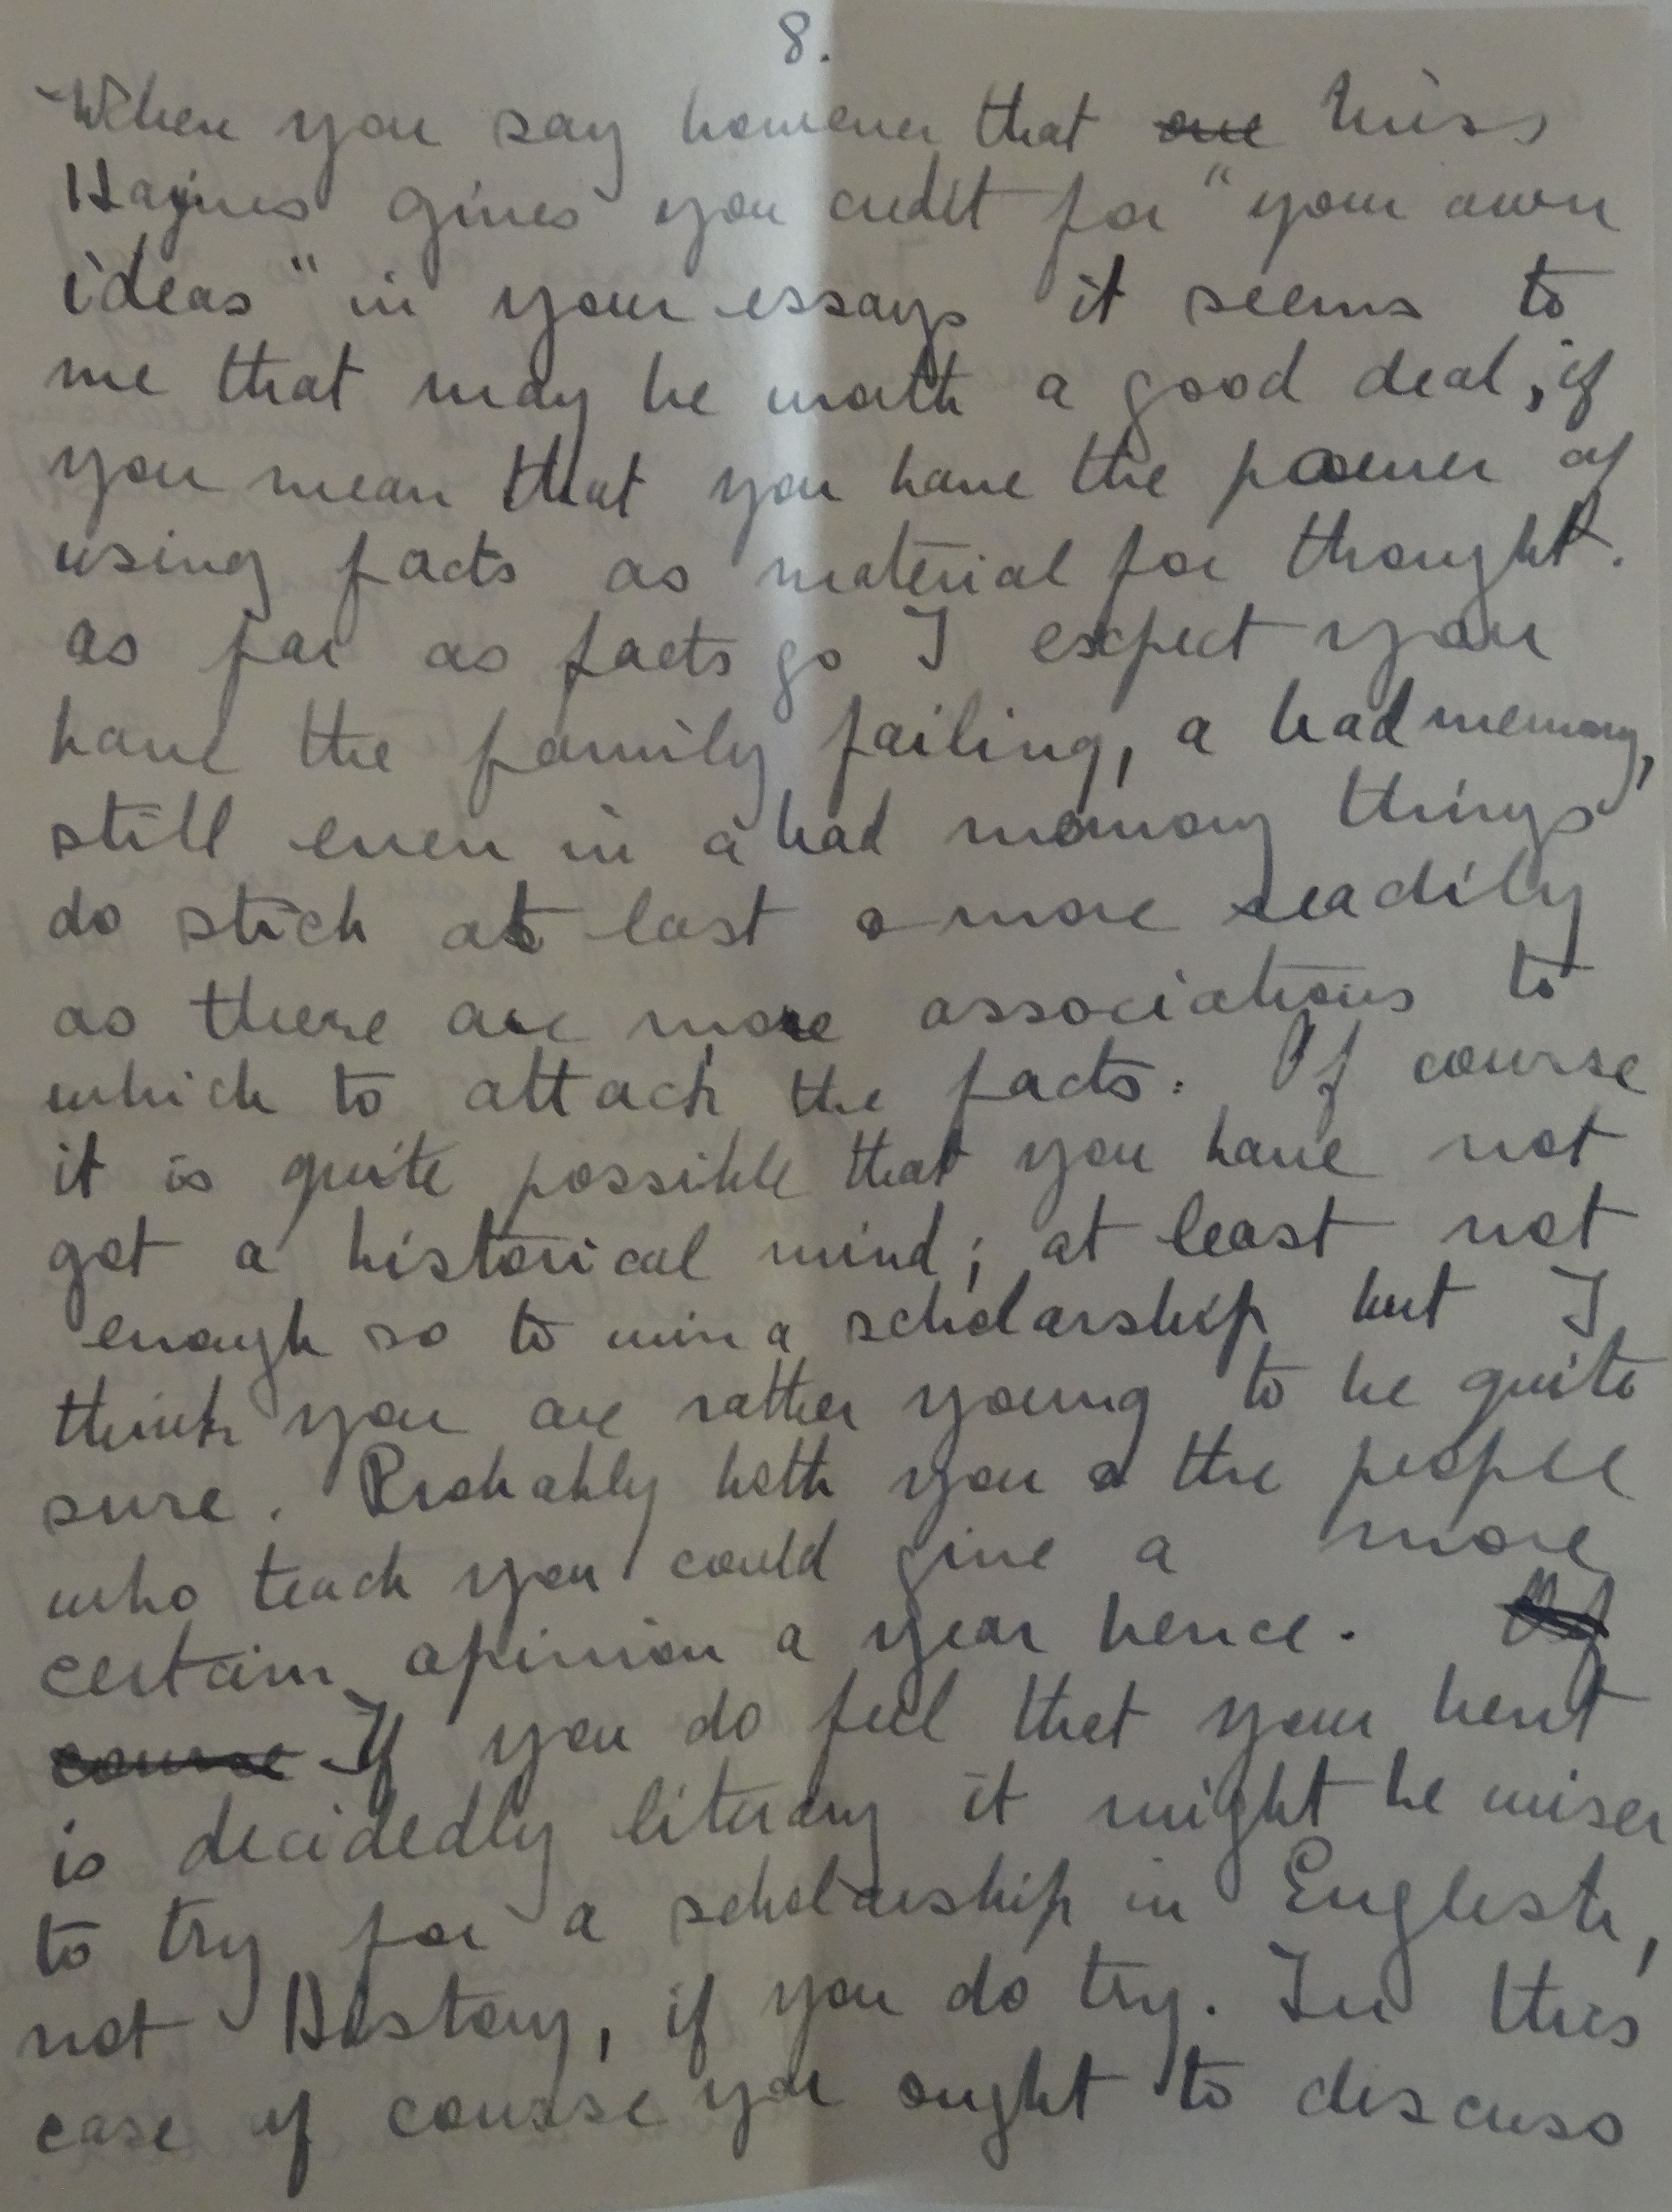 8.
When you say however that one Miss
Haynes gives you credit for "your own
ideas" in your essays it seems to
me that may be worth a good deal, if
you mean that you have the power of
using facts as material for thought.
as far as facts go I expect you
have the family failing, a bad memory,
still even in a bad memory things
do stick at last & more readily
as there are more associations to
which to attach the facts. Of course
it is quite possible that you have not
got a historical mind; at least not
enough so to win a scholarship but I
think you are rather young to be quite
sure. Probably both you & the people
who teach you could give a more
certain opinion a year hence. Of
course If you do feel that your bent
is decidedly literary it might be wiser
to try for a scholarship in English,
not History, if you do try. In this
case of course you ought to discuss